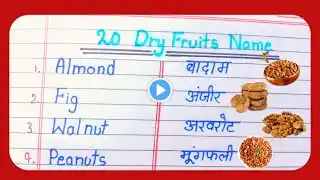 20 Dry Fruits Name
1. Almond बादाम
2. Fig अंजीर
3. Walnut अखरोट
4. Peanuts मूंगफली